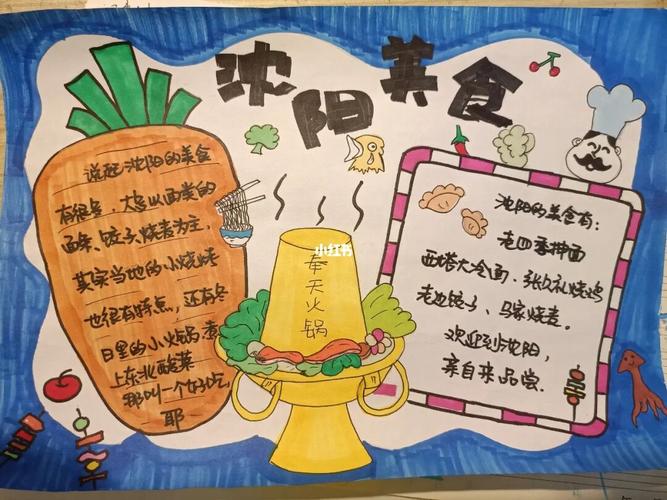 沈阳美食
说起沈阳的美食
有很多，大多以面类的
面条、饺子烧麦为主，
其实当地的小烧烤
也很有特点，还有冬
日里的小火锅煮
上东北酸菜
那叫一个好吃
耶
小红书
奉天火锅
沈阳的美食有：
老四季抻面
西塔大冷面、张久礼烧鸡
老边饺子、马家烧麦。
欢迎到沈阳，
亲自来品尝.